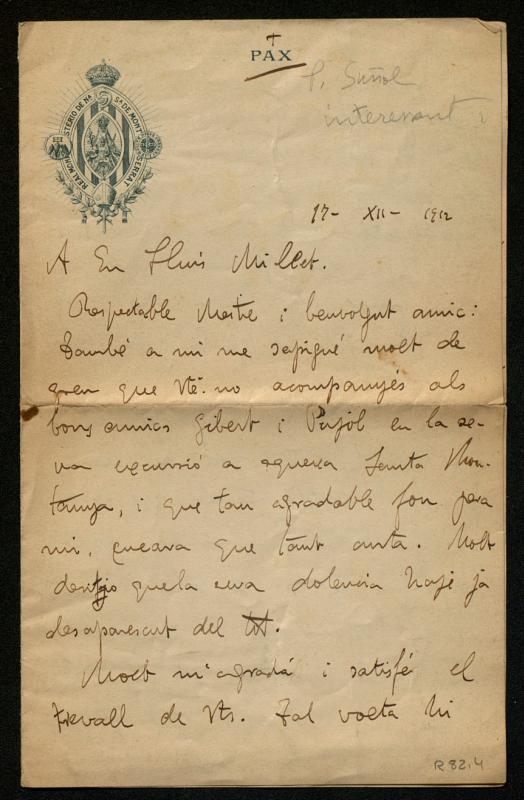 PAX
P. Suñol
interessant
REAL MONASTERIO DE Nª Sª DE MONTSERRAT
17- XII- 1912
A En Lluis Millet.
Respectable Mestre i benvolgut amic:
També a mi me sapigué molt de
greu que Vtè. no acompanyés als
bons amics Gibert i Pujol en la se-
va excursió a aquexa Santa Mon-
tanya, i que tan agradable fou pera
mi, encara que tant curta. Molt
desitjo que la seva dolencia haje ja
desaparescut del tot.
Molt m'agradá i satisfé el
trevall de Vts. Tal volta hi
R 82.4